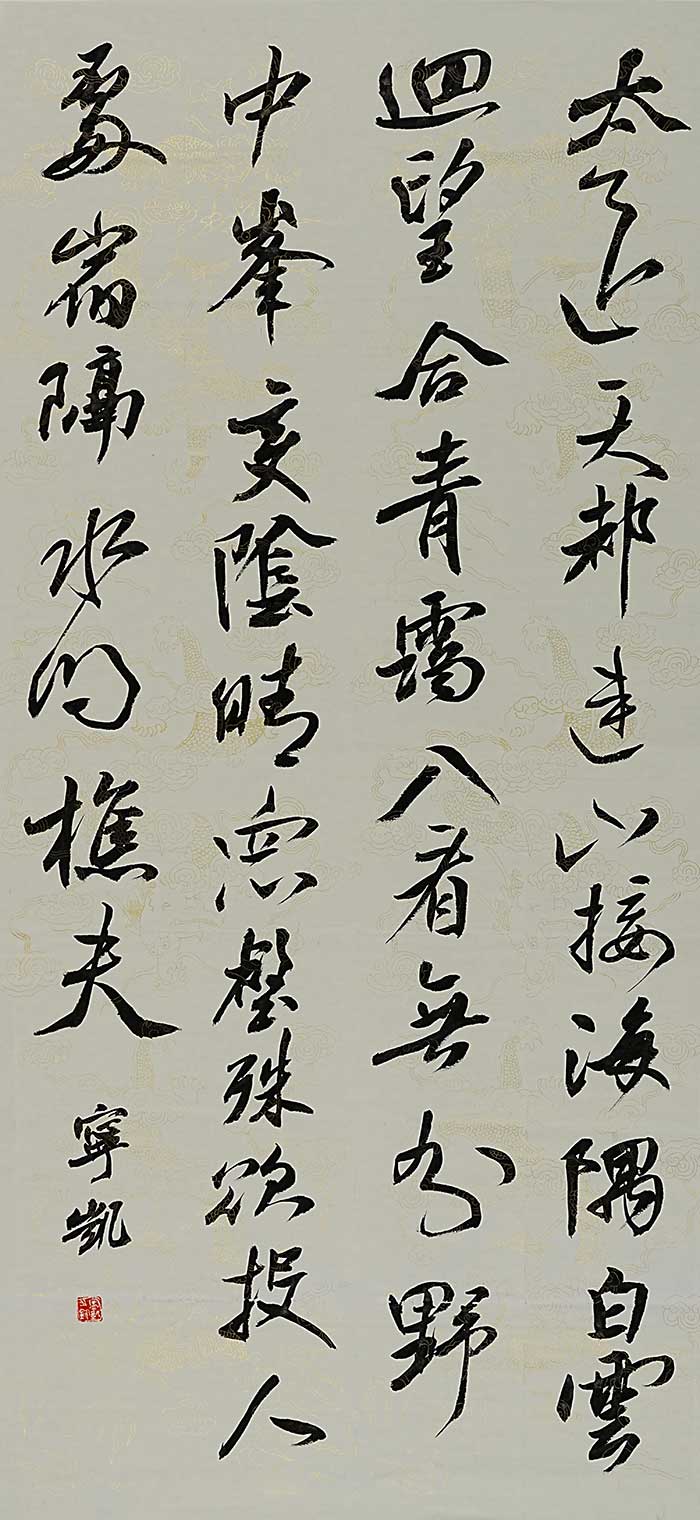 太乙近天都連山接海隅白雲
迴望合青靄入看無分野
中峯變陰晴衆壑殊欲投人
處宿隔水問樵夫
寧凱